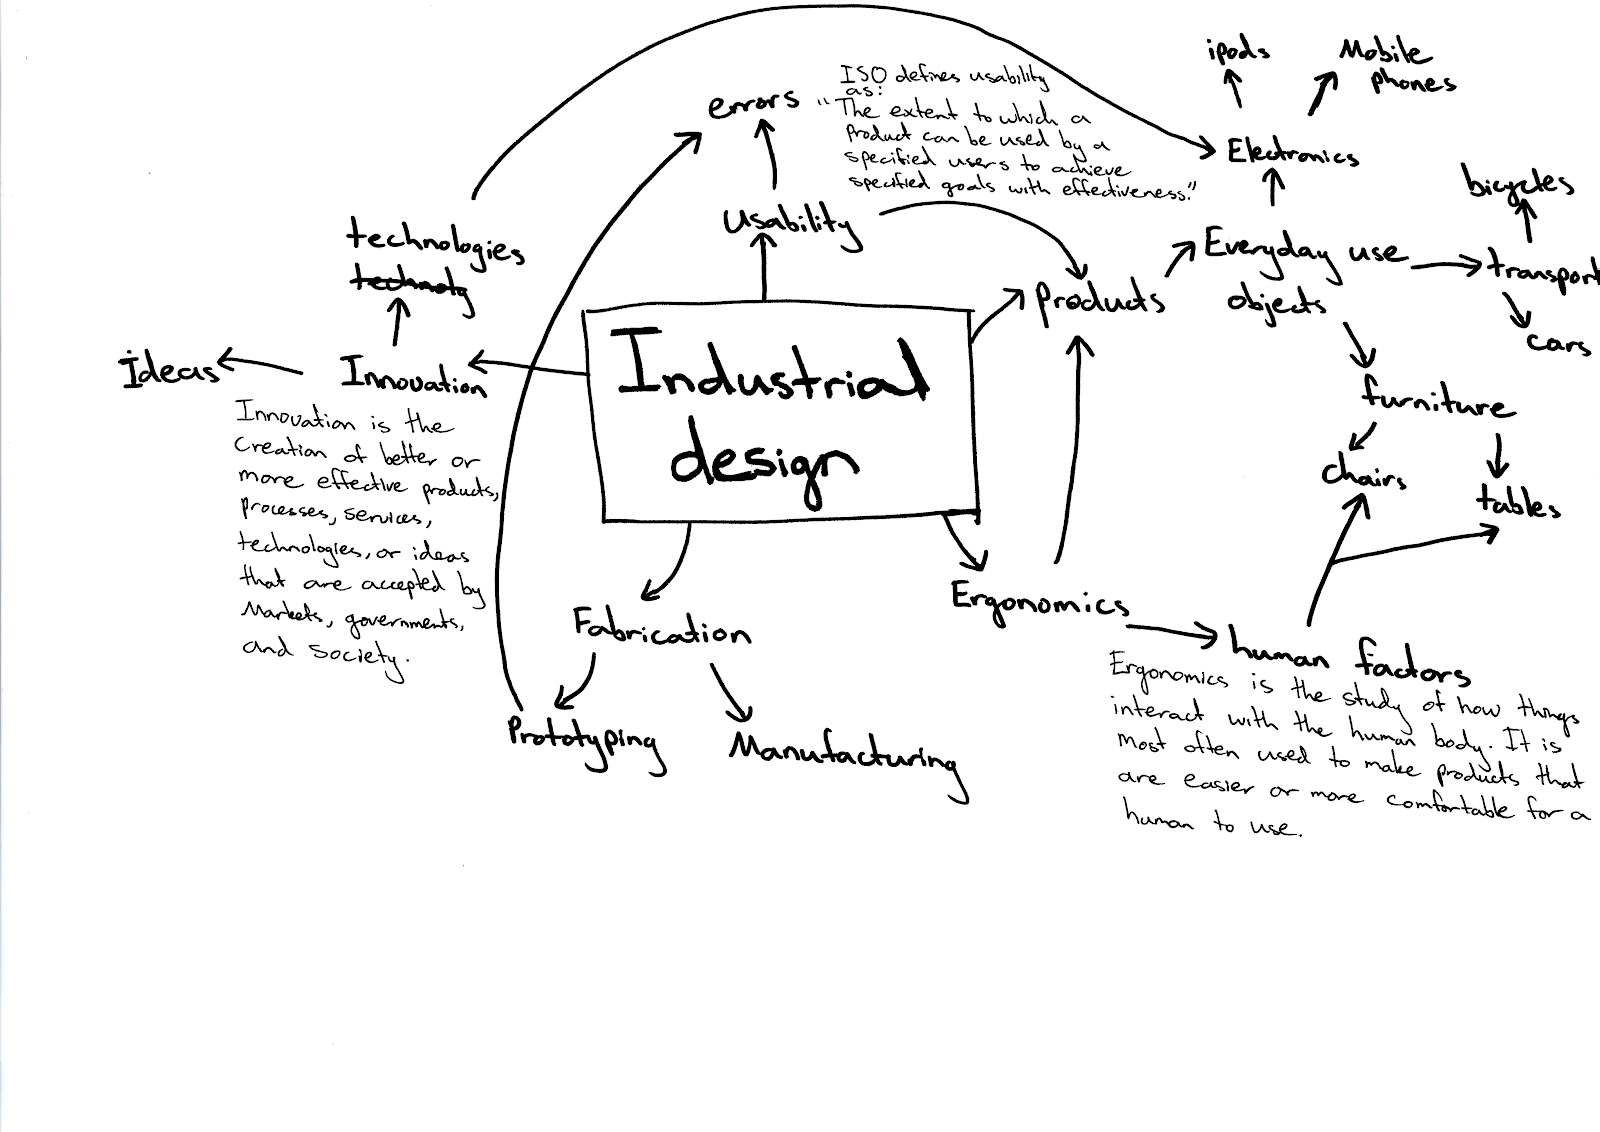 ipods
Mobile
phones
ISO defines usability
as:
errors
"The extent to which a
Product can be used by a
specified users to achieve
specified goals with effectiveness."
Electronics
bicycles
Usability
technologies
technolg
Everyday use
objects
transport
Products
cars
Ideas
Innovation
Industrial
design
furniture
chairs
tables
Innovation is the
creation of better or
more effective products,
processes, services,
technologies, or ideas
that are accepted by
Markets, governments,
and society.
Ergonomics
Fabrication
human factors
Ergonomics is the study of how things
interact with the human body. It is
most often used to make products that
are easier or more comfortable for a
human to use.
Prototyping
Manufacturing